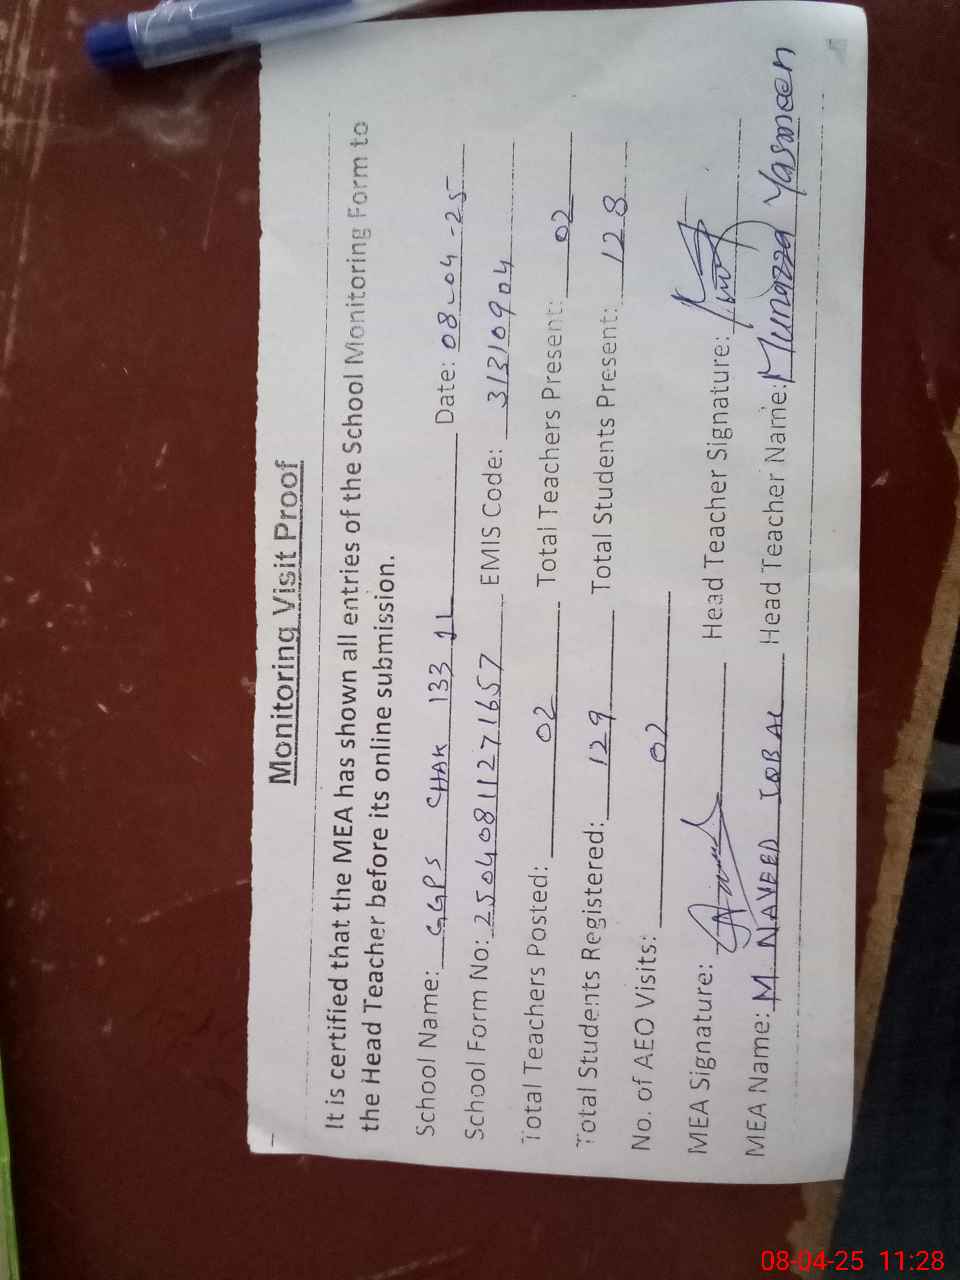 Monitoring Visit Proof
It is certified that the MEA has shown all entries of the School Monitoring Form to
the Head Teacher before its online submission.
School Name: GGPS CHAK 133 JL Date: 08-04-25
School Form No: 25040811271657 EMIS Code: 31310904
Total Teachers Posted: 02 Total Teachers Present: 02
Total Students Registered: 129 Total Students Present: 128
No. of AEO Visits: 02
MEA Signature: Head Teacher Signature:
MEA Name: M. NAVEED IQBAL Head Teacher Name: Munazza Yasmeen
08-04-25 11:28